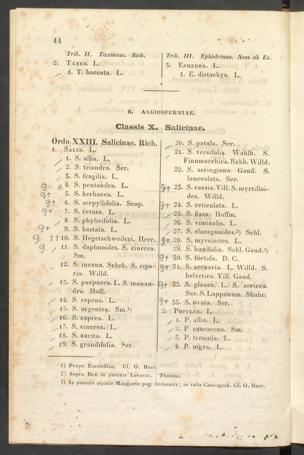 44
Trib. II. Taxineae. Rich.
2. Taxus. L.
4. T. baccata. L.
Trib. III. Ephedrinae. Nees ab Es.
5. Ephedra. L.
4. E. distachya. L.
B. ANGIOSPERMIAE.
Classis X. Salicinae.
Ordo XXIII. Salicinae. Rich.
1. Salix. L.
1. S. alba. L.
2. S. triandra. Ser.
3. S. fragilis. L.
4. S. pentandra. L.
5. S. herbacea. L.
6. S. serpyllifolia. Scop.
7. S. retusa. L.
8. S. phylicifolia. L.
9. S. hastata. L.
10. S. Hegetschweileri. Heer.
11. S. daphnoides. S. cinerea. Sm.
12. S. incana. Schrk. S. ripa-
ria. Willd.
13. S. purpurea. L. S. monan-
dra. Hoff.
14. S. repens. L.
15. S. argentea. Sm.¹)
16. S. caprea. L.
17. S. cinerea. L.
18. S. aurita. L.
19. S. grandifolia. Ser.
20. S. patula. Ser.
21. S. versifolia. Wahlb. S.
Finnmarchica. Rchb. Willd.
22. S. seringiana. Gaud. S.
lanceolata. Ser.
23. S. caesia. Vill. S. myrtilloi-
des. Willd.
24. S. reticulata. L.
25. S. fissa. Hoffm.
26. S. viminalis. L.
27. S. elaeagnoides.²) Schl.
28. S. myrsinites. L.
29. S. buxifolia. Schl. Gaud.³)
50. S. foetida. D. C.
51. S. arenaria. L. Willd. S.
helvetica. Vill. Gaud.
52. S. glauca. L. S. sericea.
Ser. S. Lapponum. Skuhr.
55. S. ovata. Ser.
2. Populus. L.
1. P. alba. L.
2. P. canescens. Sm.
3. P. tremula. L.
4. P. nigra. L.
1) Prope Einsiedlen. Cl. O. Heer.
2) Supra Bex in pascuis Lavaraz. Thomas.
3) In pascuis alpinis Cl. O. Heer.